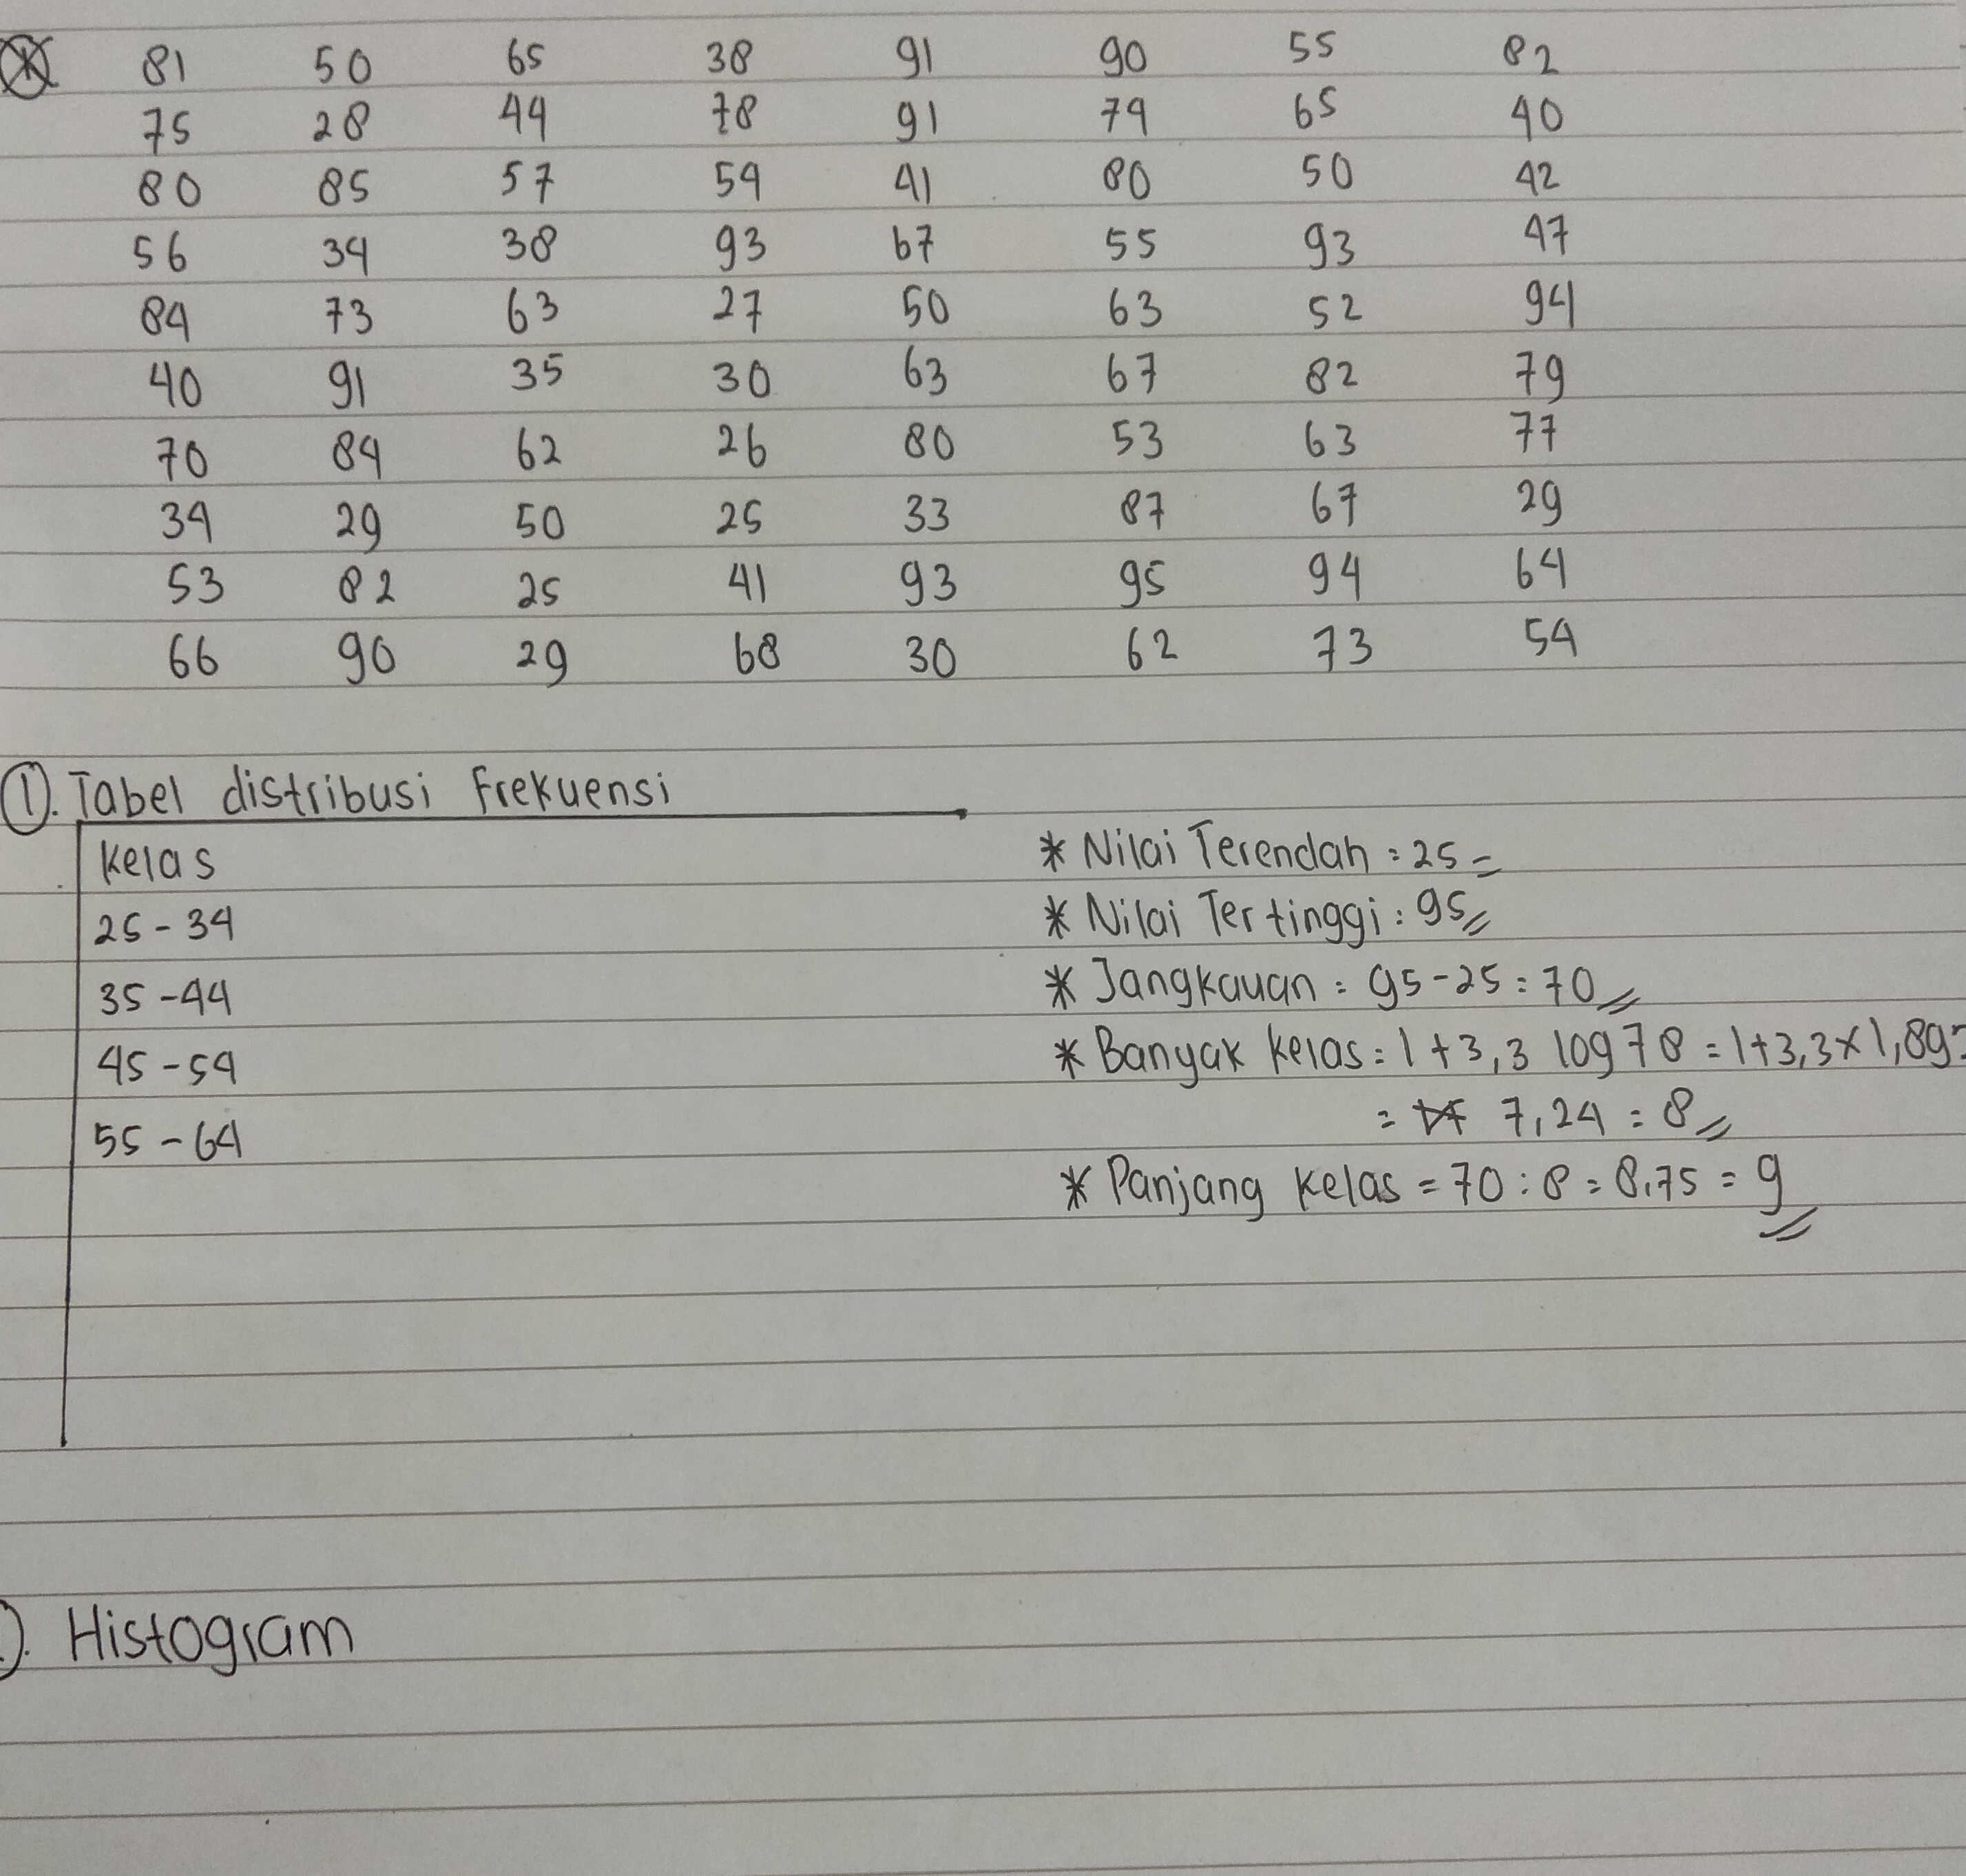 81 50 65 38 91 90 55 82
75 28 44 78 91 79 65 40
80 85 57 59 41 80 50 42
56 34 38 93 67 55 93 47
84 73 63 27 50 63 52 94
40 91 35 30 63 67 82 79
70 84 62 26 80 53 63 77
34 29 50 25 33 87 67 29
53 82 25 41 93 95 94 64
66 90 29 68 30 62 73 54
1. Tabel distribusi Frekuensi
Kelas
25-34
35-44
45-54
55-64
* Nilai Terendah = 25
* Nilai Tertinggi = 95
* Jangkauan = 95-25 = 70
* Banyak kelas = 1 + 3,3 log 78 = 1+3,3×1,89
= 7,24 = 8
* Panjang Kelas = 70 : 8 = 8,75 = 9
Histogram